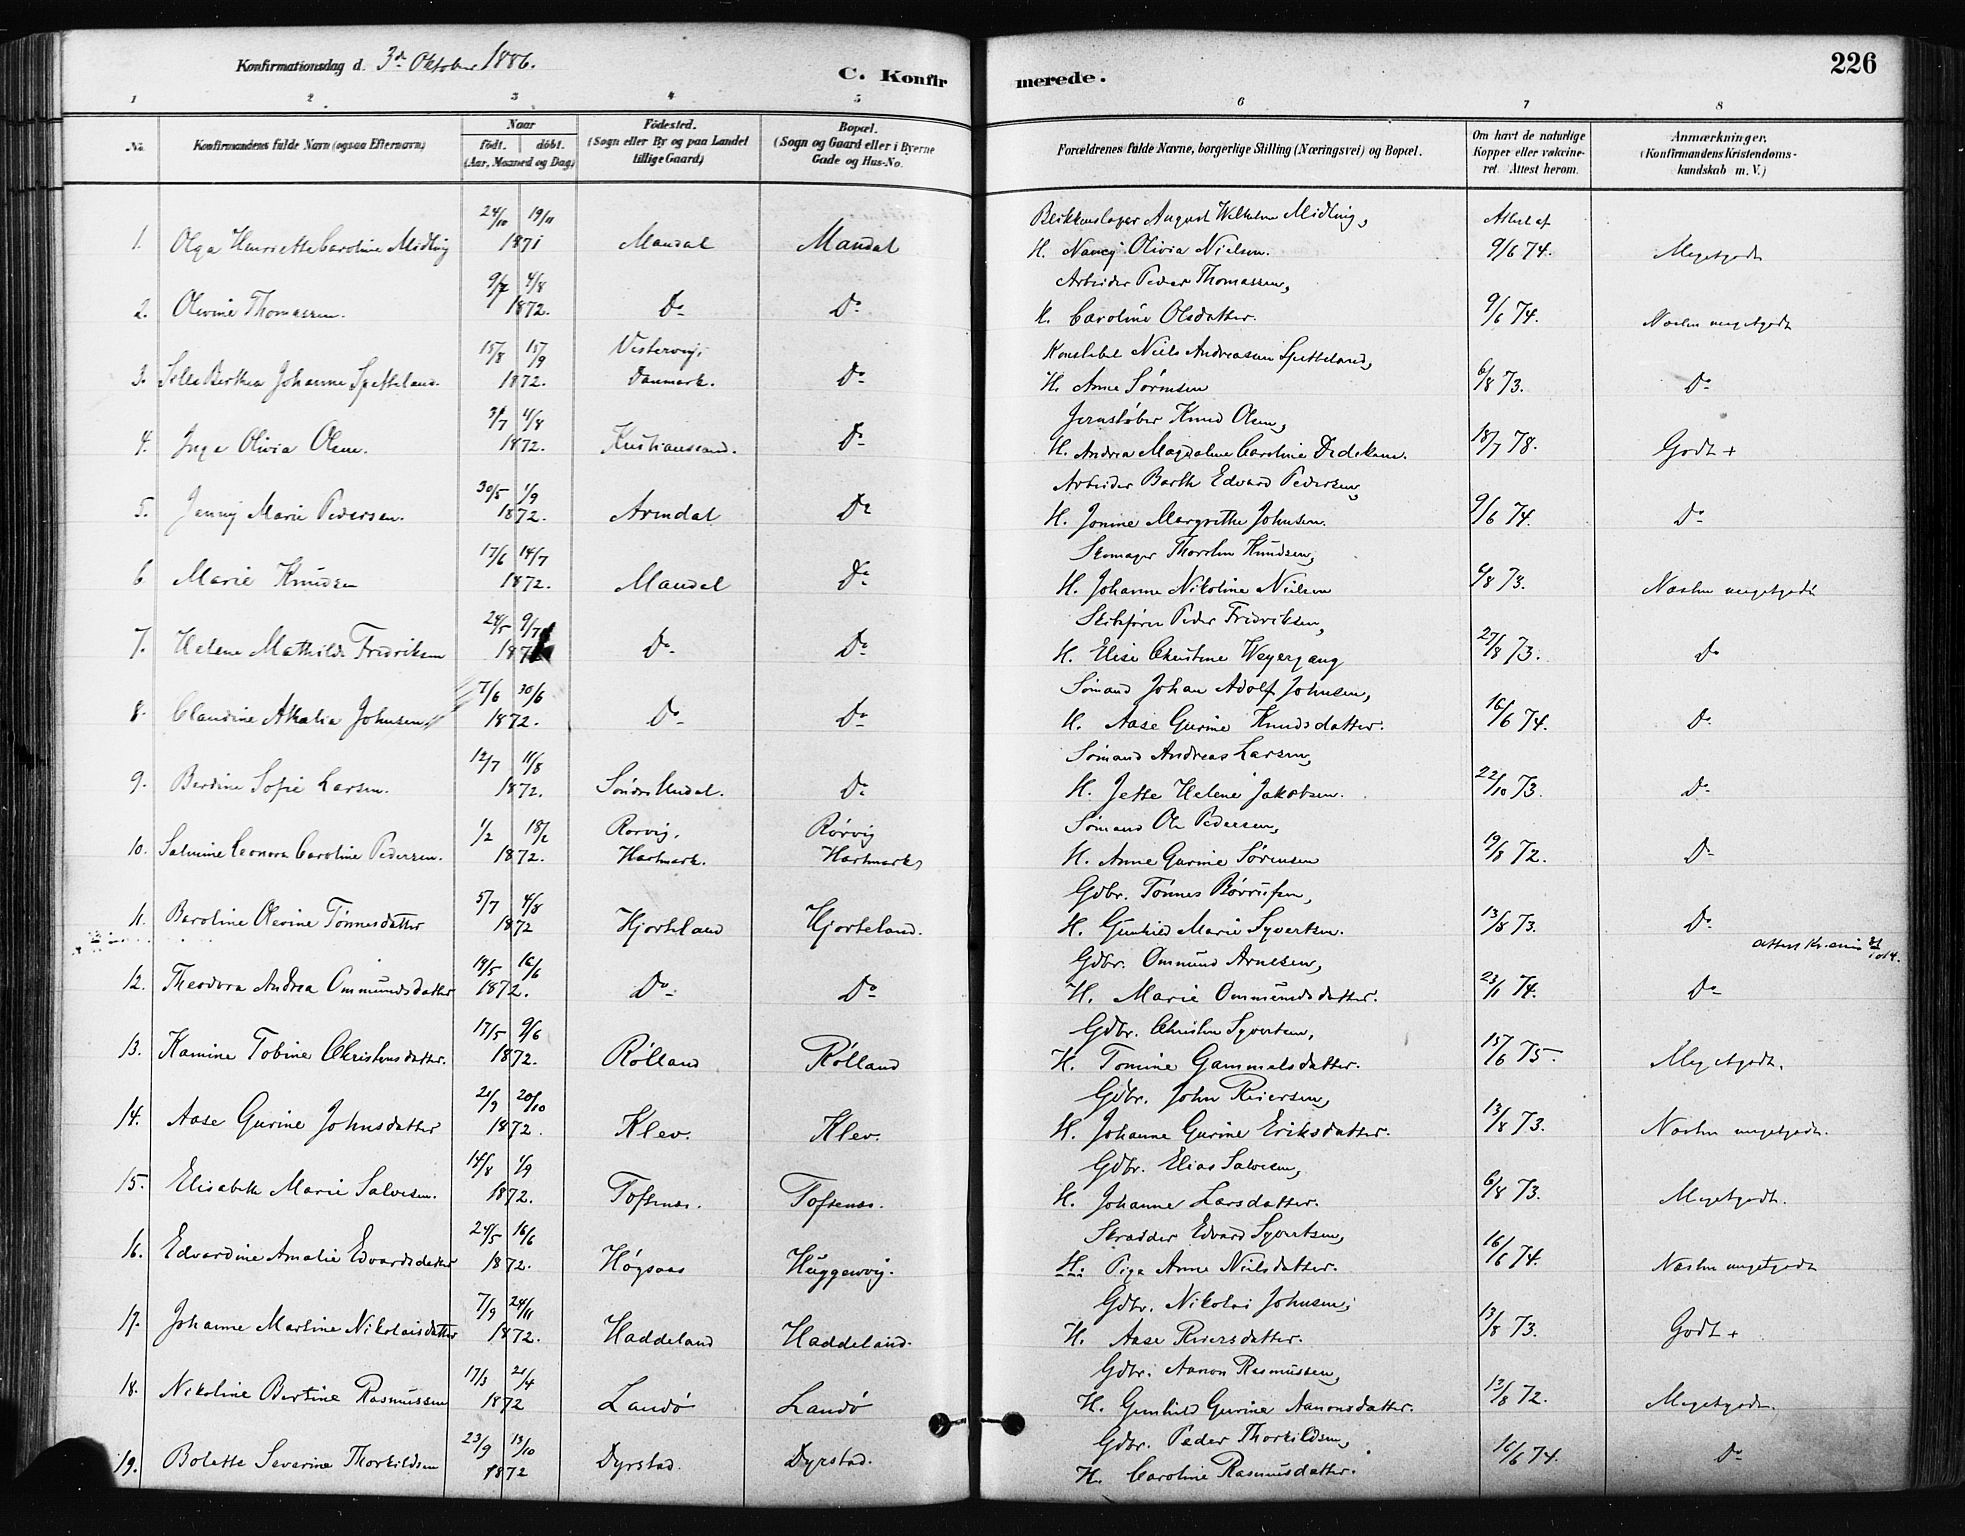 Konfirmationsdag d. 3de Oktober 1886.
C. Konfirmerede.
226
1 2 3 4 5 6 7 8
No.
Konfirmandens fulde Navn (ogsaa Efternavn)
Naar
födt. döbt.
(Aar, Maaned og Dag)
Födested.
(Sogn eller By og paa Landet tillige Gaard)
Bopæl.
(Sogn og Gaard eller i Byerne Gade og Hus-No.
Forældrenes fulde Navne, borgerlige Stilling (Næringsvei) og Bopæl.
Om havt de naturlige Kopper eller vakcineret. Attest herom.
Anmærkninger.
(Konfirmandens Kristendomskundskab m. V.)
1. Olga Henriette Caroline Midling 24/10 19/11 1871 Mandal Mandal Blikkenslager August Wilhelm Midling, H. Nancy Olivia Nielsen. Attest af 9/6 74. Megetgodt
2. Olevine Thomassen. 9/7 4/8 1872. Do Do Arbeider Peder Thomassen, H. Caroline Olsdatter. 9/6 74. Næsten megetgodt
3. Berthea Johanne Spetteland. 15/8 15/9 1872. Vestervig, Danmark. Do Konstabel Niels Andreasen Spetteland, H. Anne Sörensen 6/8 73. Do
4. Inga Olivia Olsen. 31/7 4/8 1872. Kristianssand. Do Jernstöber Knud Olsen, H. Andrea Magdalene Caroline Dideksen. 18/7 78. Godt +
5. Jenny Marie Pedersen. 30/5 1/9 1872. Arendal Do Arbeider Barth Edvard Pedersen, H. Jonine Margrethe Johnsen. 9/6 74. Do
6. Marie Knudsen 17/6 14/7 1872. Mandal Do Skomager Knudsen, H. Johanne Nikoline Nielsen 6/8 73. Næsten megetgodt
7. Helene Mathilde Fredriksen 24/5 9/7 1872 Do Do Skibsförer Peder Fredriksen, H. Elise Christine Weyergang 27/8 73. Do
8. Claudine Athalia Johnsen. 7/6 30/6 1872. Do Do Sömand Johan Adolf Johnsen, H. Aase Gurine Knudsdatter. 16/6 74. Do
9. Berdine Sofie Larsen. 12/7 11/8 1872. Sönder Undal. Do Sömand Andreas Larsen, H. Jette Helene Jakobsen. 22/10 73. Do
10. Salmine Leonora Caroline Pedersen. 1/2 18/2 1872. Rorvig, Hartmark. Rörvig Hartmark, Sömand Ole Pedersen, H. Anne Gurine Sörensen 19/8 72. Do
11. Beroline Olevine Tönnesdatter 5/7 4/8 1872 Hjorteland Hjorteland. Gdbr. Tönnes Börrufsen, H. Gunhild Marie Syvertsen. 13/8 73. Do
12. Theodora Andrea Ommundsdatter 19/5 16/6 1872. Do Do Gdbr. Ommund Arnesen, H. Marie Ommundsdatter. 23/11 74. Do
13. Kamine Tobine Christensdatter. 17/5 9/6 1872. Rölland Rölland Gdbr. Christen Syvertsen, H. Tomine Gammelsdatter. 15/6 75. Megetgodt.
14. Aase Gurine Johnsdatter 21/9 20/10 1872. Klev. Klev. Gdbr. John Reiersen, H. Johanne Gurine Eriksdatter. 13/8 73. Næsten megetgodt.
15. Elisabeth Marie Salvesen. 14/8 1/9 1872. Toftenæs. Toftenæs. Gdbr. Elias Salvesen, H. Johanne Larsdatter. 6/8 73. Megetgodt.
16. Edvardine Amalie Edvardsdatter 24/5 16/6 1872. Högsaas Huggenvig. Skrædder Edvard Syvertsen, H. Pige Anne Nielsdatter. 16/6 74. Næsten megetgodt
17. Johanne Martine Nikolaisdatter 7/9 24/11 1872. Haddeland Haddeland. Gdbr. Nikolai Johnsen, H. Aase Reiersdatter. 13/8 73. Godt +
18. Nikoline Bertine Rasmussen 17/3 21/4 1872 Landö Landö Gdbr. Aanon Rasmussen, H. Gunhild Gurine Aanonsdatter. 12/8 72. Megetgodt.
19. Bolette Severine Thorkildsen 23/9 13/10 1872 Dyrstad. Dyrstad. Gdbr. Peder Thorkildsen, H. Caroline Rasmusdatter. 16/6 74. Do